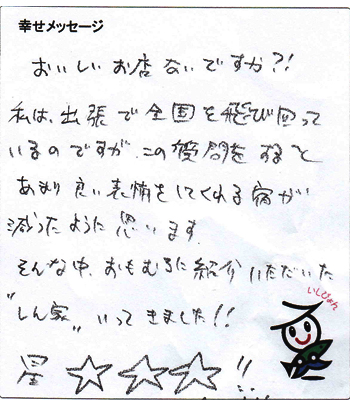 幸せメッセージ
おいしいお店ないですか?!
私は、出張で全国を飛び回って
いるのですが、この質問をすると
あまり良い表情をしてくれる宿が
減ったように思います。
そんな中、おもむろに紹介いただいた
"しん家" いってきました!!
星☆☆☆!!